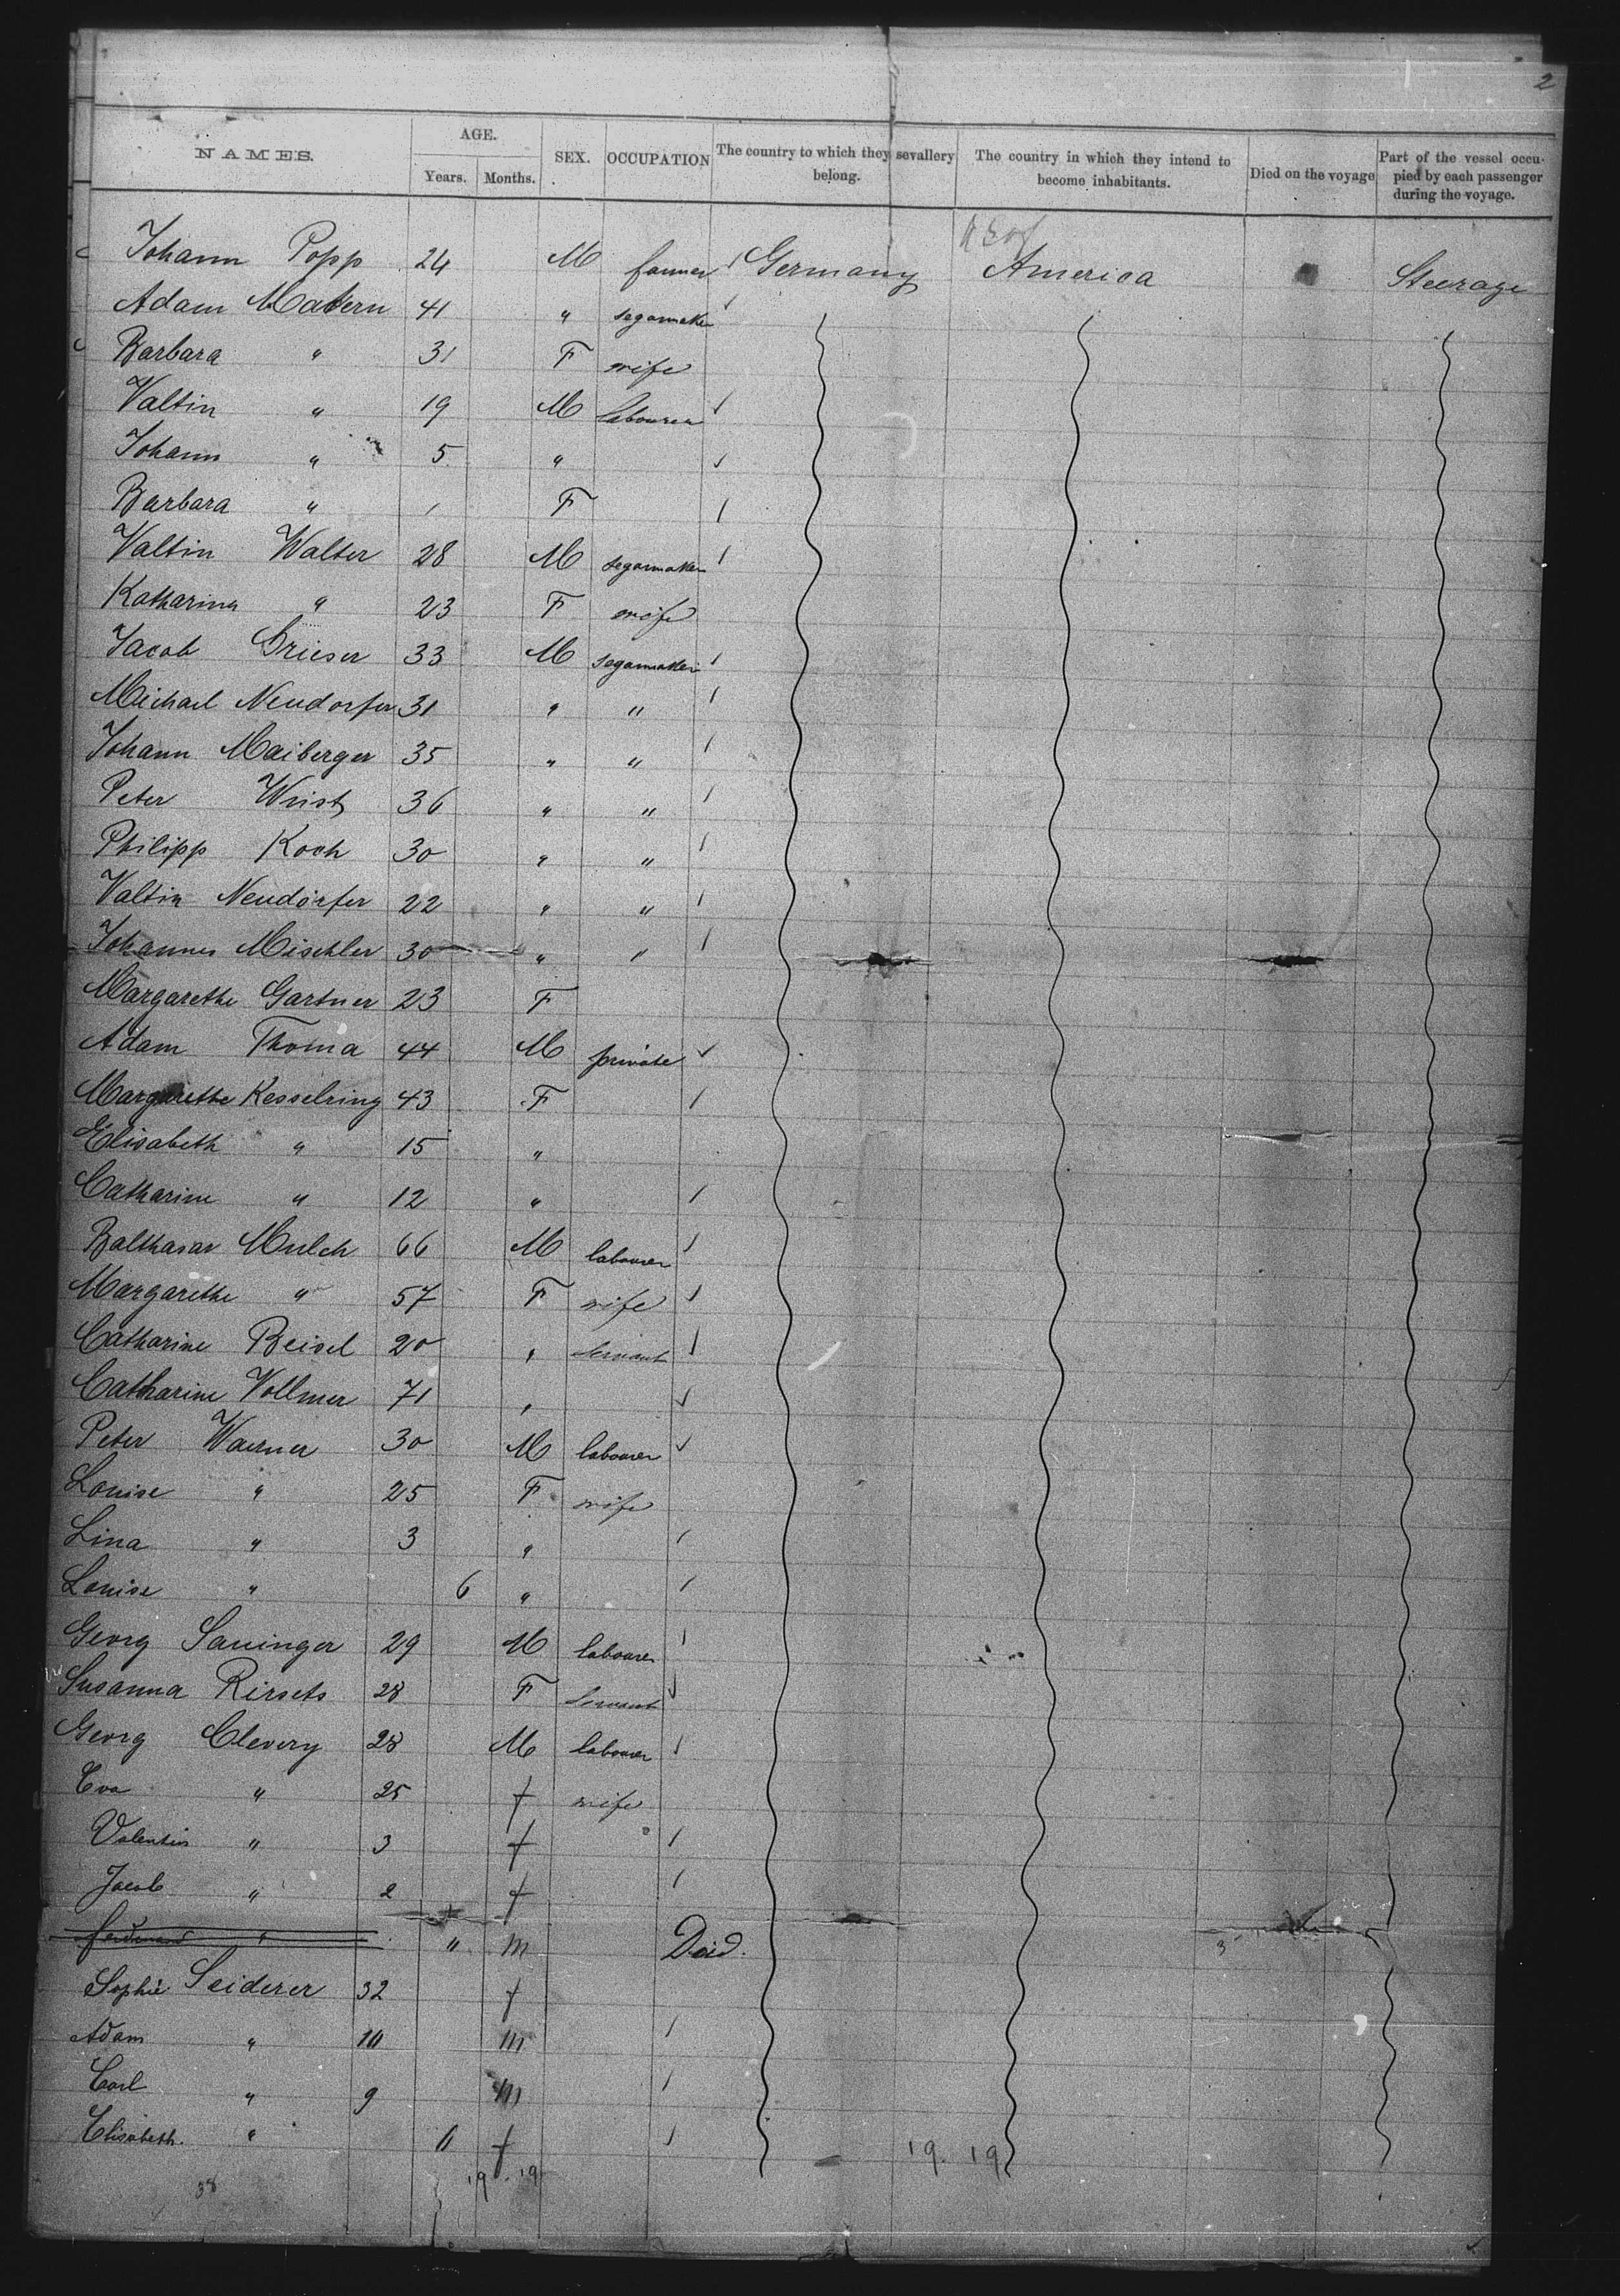 2
NAMES. AGE. Years. Months. SEX. OCCUPATION The country to which they sevallery belong. The country in which they intend to become inhabitants. Died on the voyage Part of the vessel occupied by each passenger during the voyage.
Johann Popp 24 M farmer Germany America Steerage
Adam Matern 41 " segarmaker
Barbara " 31 F wife
Valtin " 19 M labourer
Johann " 5 "
Barbara " 1 F
Valtin Walter 28 M segarmaker
Katharina " 23 F wife
Jacob Grieser 33 M segarmaker
Michael Neudorfer 31 " "
Johann Maiberger 35 " "
Peter Wüst 36 " "
Philipp Koch 30 " "
Valtin Neudörfer 22 " "
Johannes Mischler 30 " "
Margarethe Gartner 23 F
Adam Thoma 44 M private
Margarethe Kesselring 43 F
Elisabeth " 15 "
Catharine " 12 "
Balthasar Mulch 66 M labourer
Margarethe " 57 F wife
Catharine Beisel 20 " Servant
Catharine Vollmer 71 "
Peter Waerner 30 M labourer
Louise " 25 F wife
Lina " 3 "
Louise " 6 "
Georg Sauinger 29 M labourer
Susanna 28 F Servant
Georg Clevery 28 M labourer
Eva " 25 f wife
Valentin " 3 f
Jacob " 2 f
Ferdinand " " m Deid.
Sophie Seiderer 32 f
Adam " 10 m
Carl " 9 m
Elisabeth. " 11 f
38 19. 19 19. 19